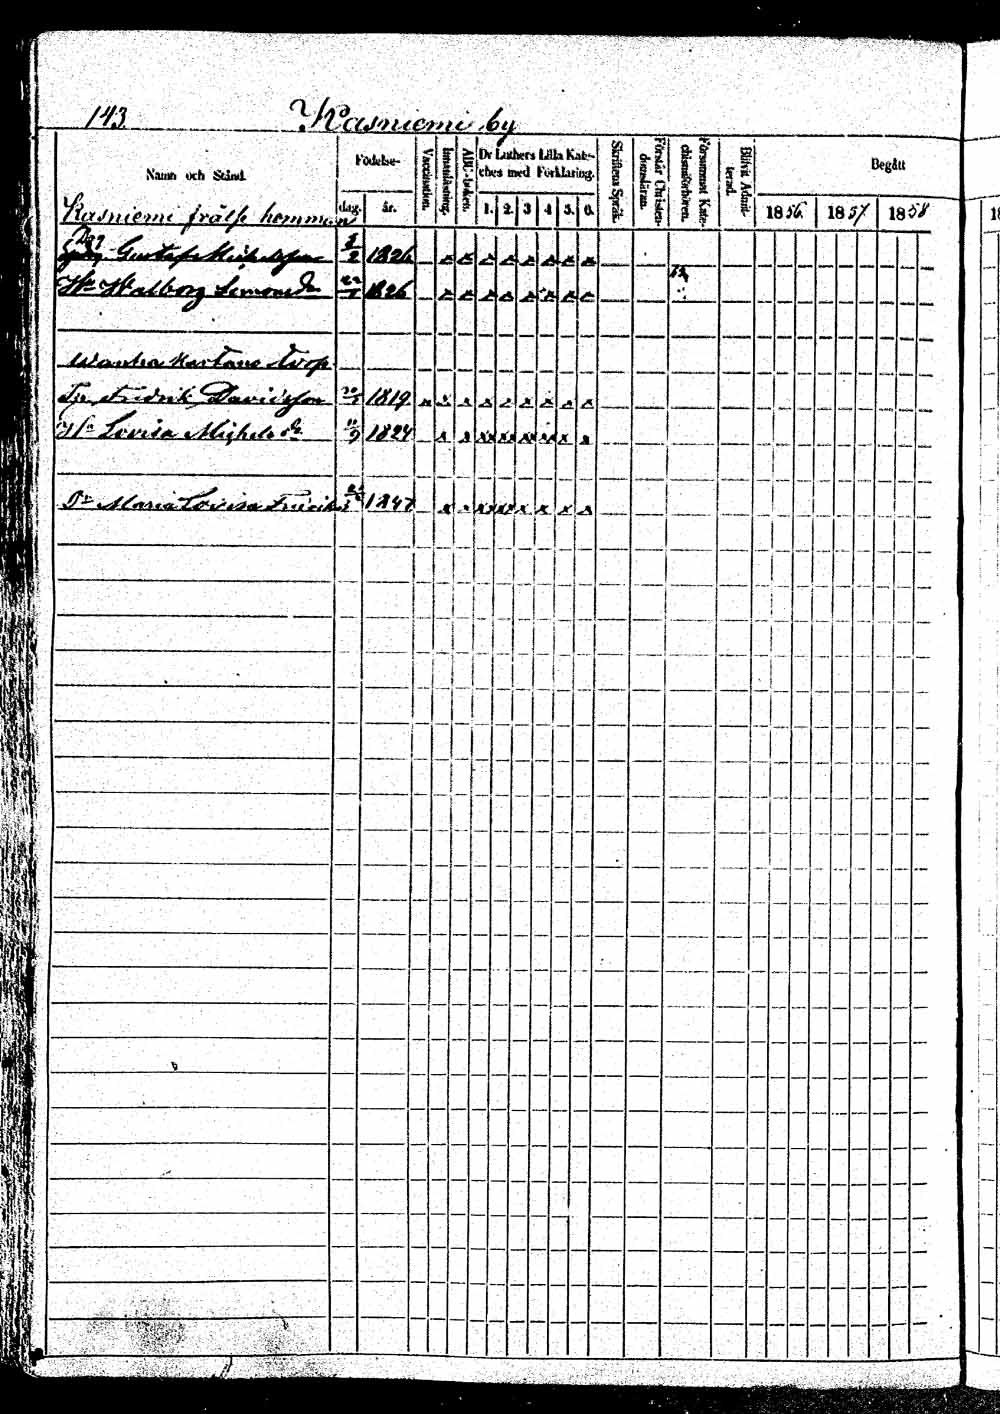 143.
Kasniemi by
Namn och Stånd.
Födelse-
dag. år.
Vaccination.
Innanläsning.
ABC-boken.
Dr Luthers Lilla Kate-
ches med Förklaring.
1. 2. 3 4 5. 6.
Skriftens Språk.
Förstår Christen-
domsläran.
Försummat Kate-
chismiförhören.
Blifvit Admit-
terad.
Begått
1856. 1857. 1858
Kasniemi frälse hemman
Gustaf Michelsson 1826
Hu Walborg Simonsdr 1826
Wanha Kartano torp
Fredrik Davidsson 1819
Hu Lovisa Michelsdr 1824
Dr Maria Lovisa 1847